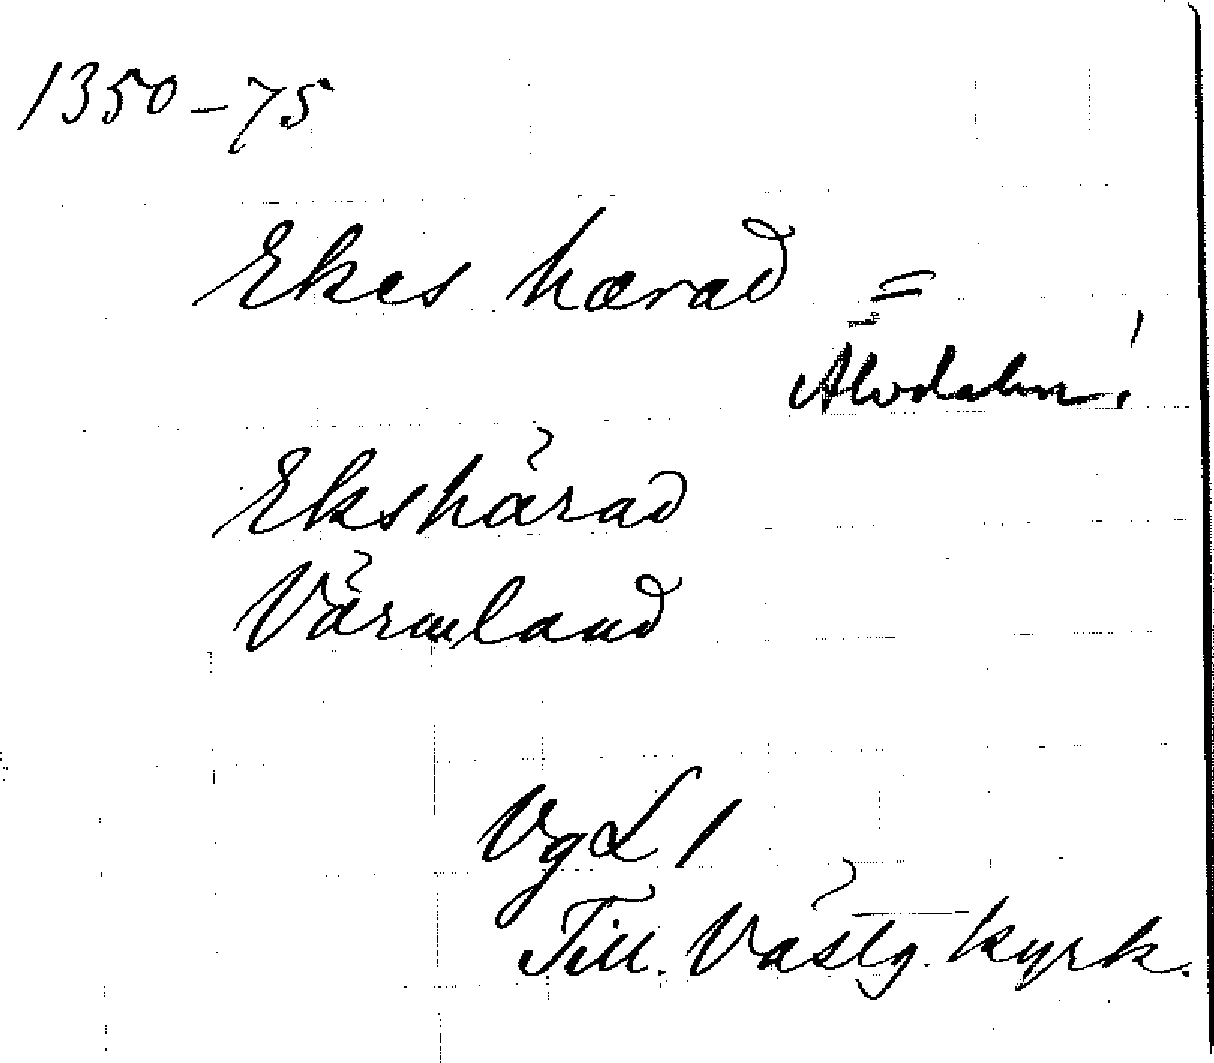 1350-75
Ekes hærad =
Älvdalen!
Ekshärad
Värmland
VgL 1
Till. Västg. kyrk.